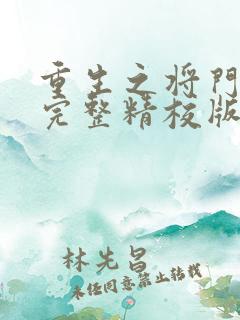 重生之将門
完整精校版
林先昌
未经同意禁止转载